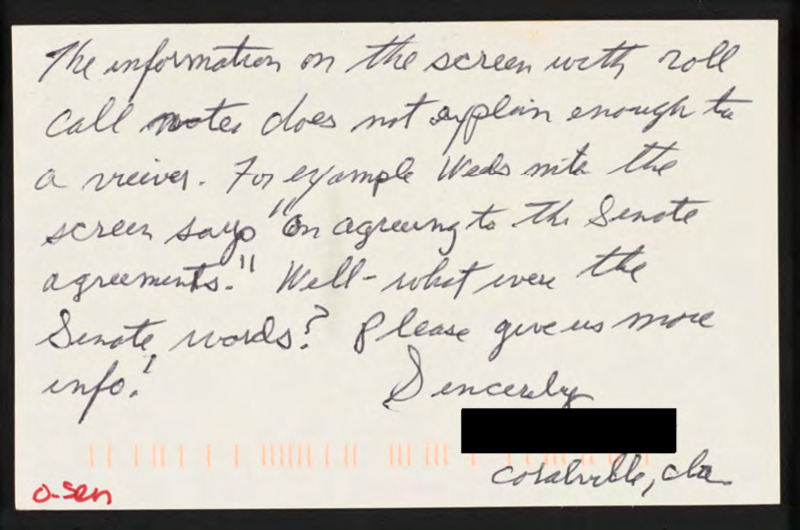 The information on the screen with roll
call notes does not explain enough to
a vieiver. For example Weds nite the
screen says "On agreeing to the Senate
agreements." Well - what were the
Senate words? Please give us more
info!
Sincerely
Coralville, Ia.
O-Sen